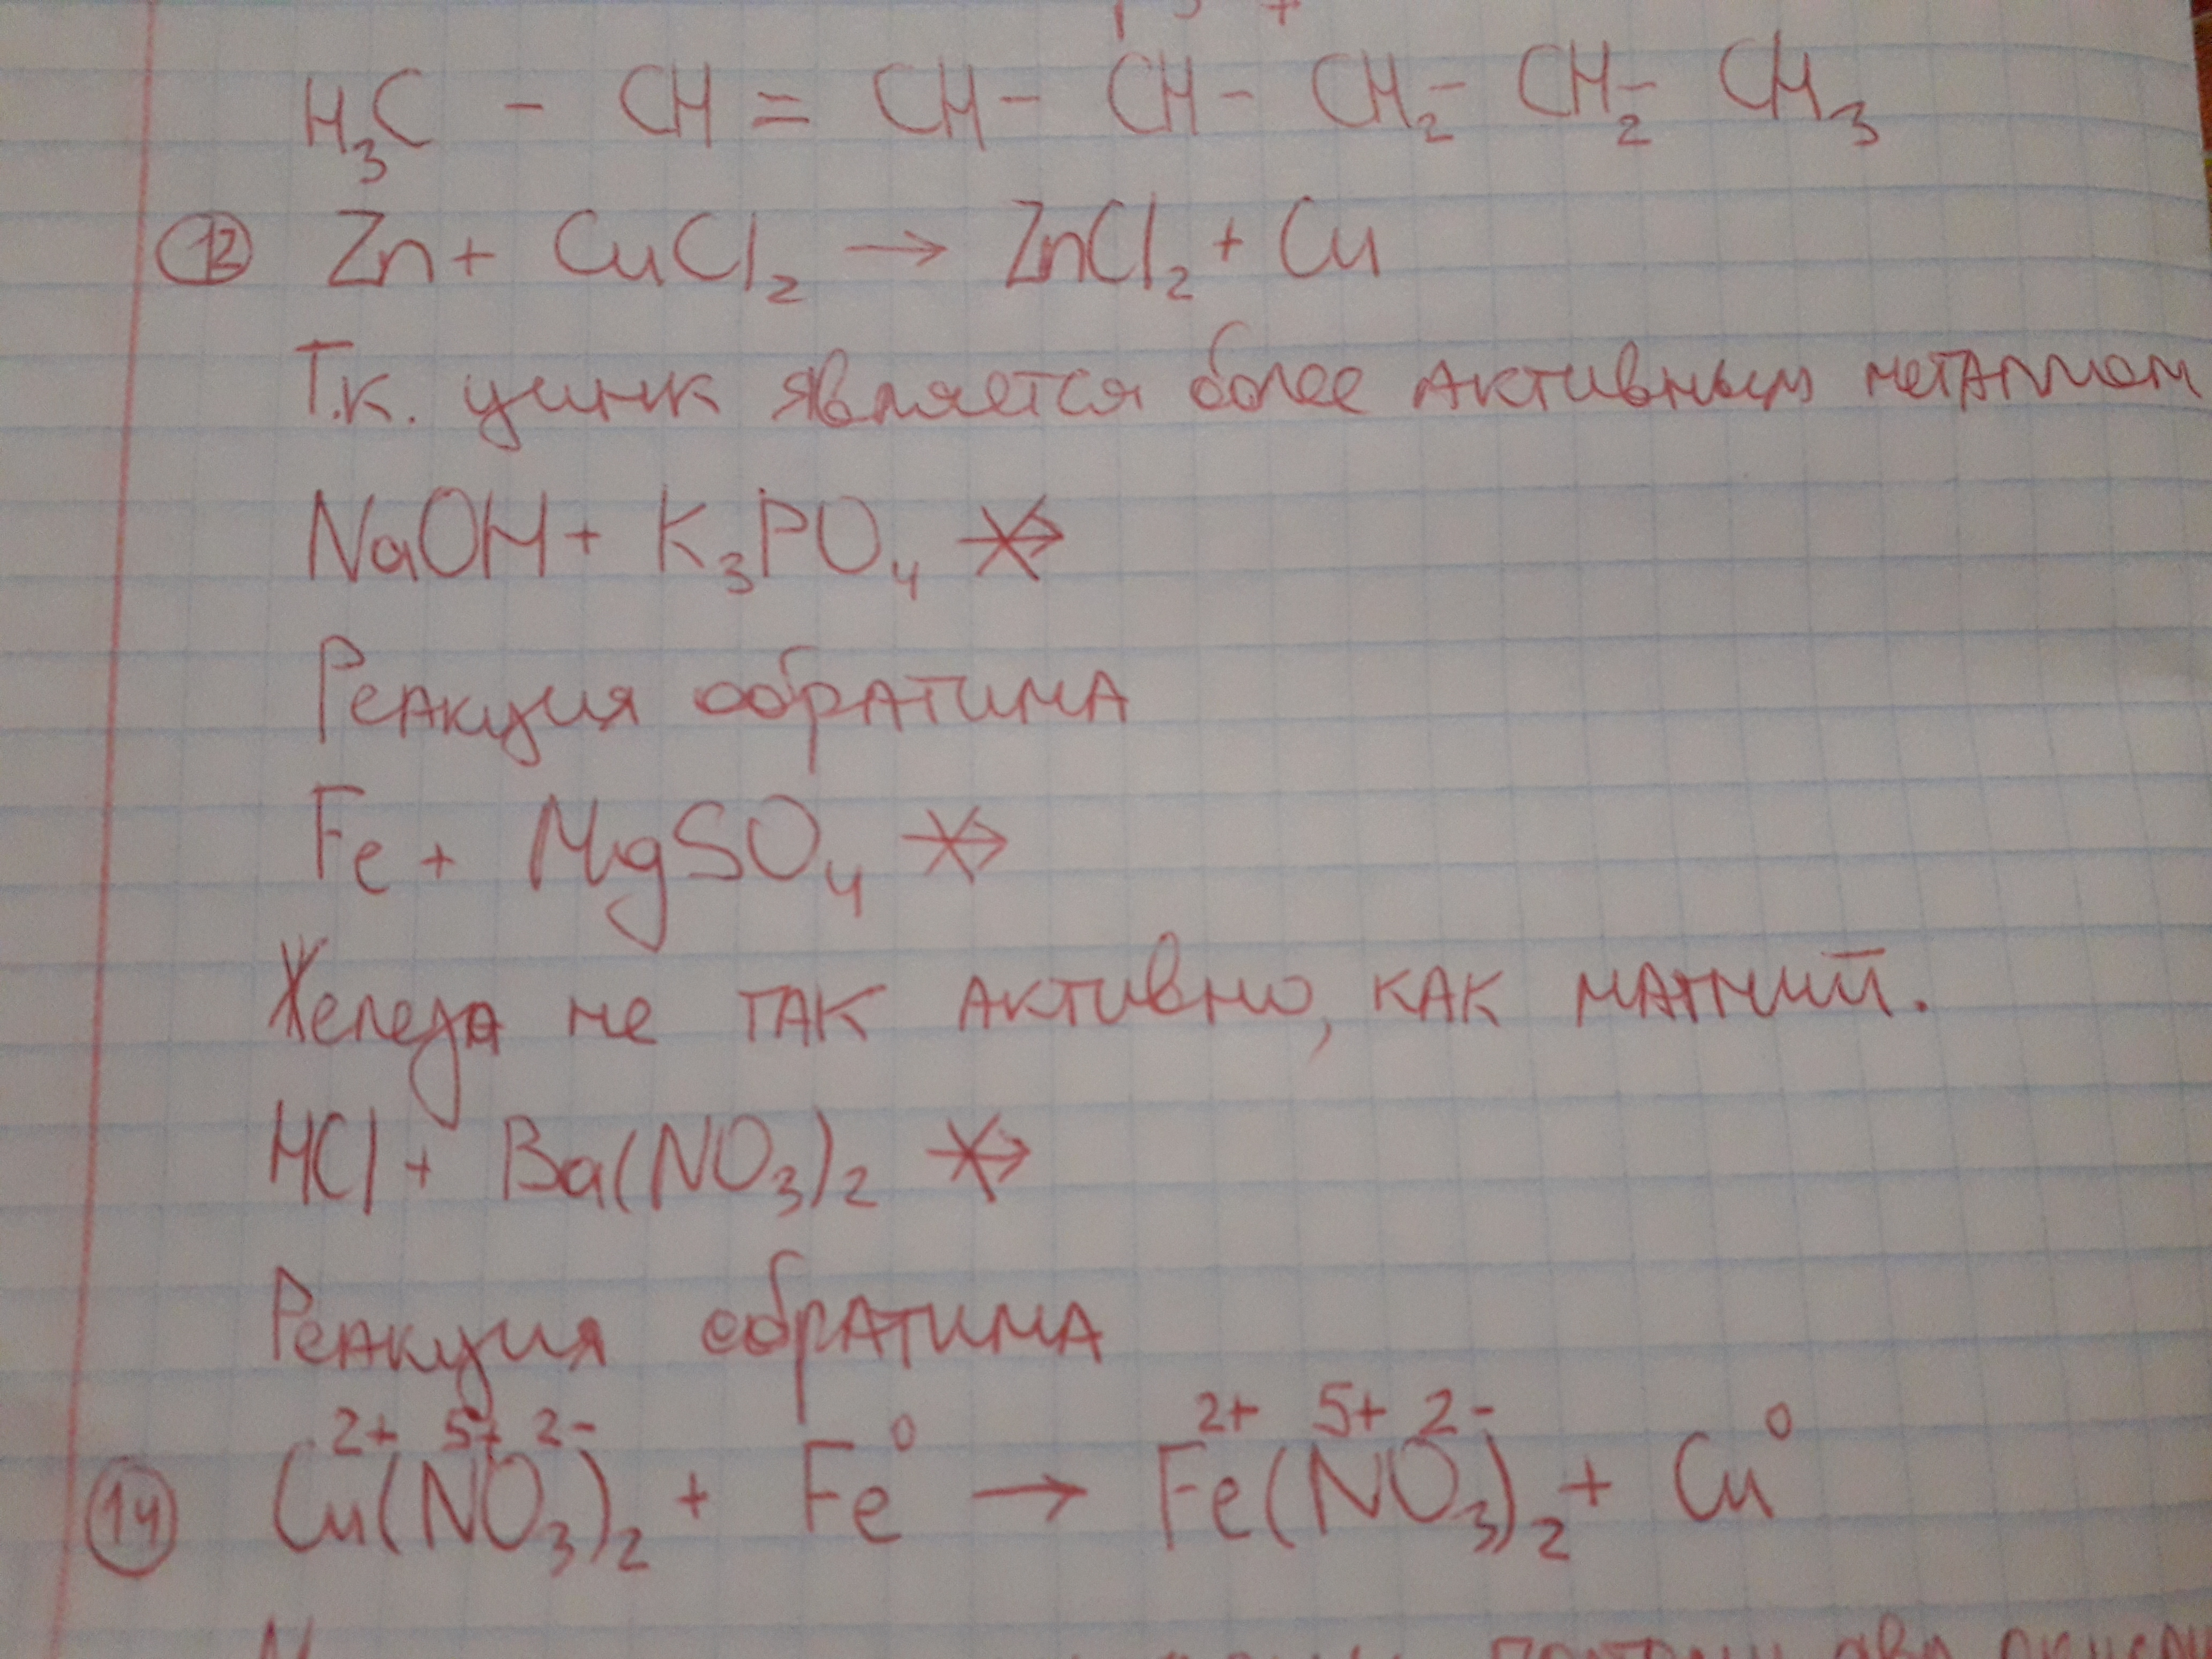 H₃C - CH = CH - CH - CH₂ - CH₂ - CH₃
13 Zn + CuCl₂ → ZnCl₂ + Cu
Т.к. цинк является более активным металлом
NaOH + K₃PO₄ ↛
Реакция обратима
Fe + MgSO₄ ↛
Железо не так активно, как магний.
HCl + Ba(NO₃)₂ ↛
Реакция обратима
2+ 5+ 2- 0 2+ 5+ 2- 0
14 Cu(NO₃)₂ + Fe → Fe(NO₃)₂ + Cu